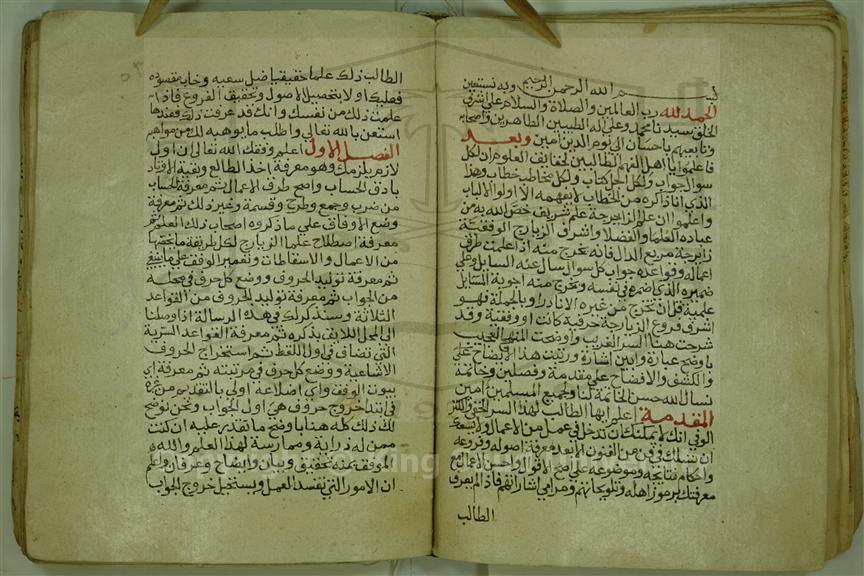 بسم الله الرحمن الرحيم وبه نستعين
الحمد لله رب العالمين والصلاة والسلام على اشرف
الخلق سيدنا محمد وعلى اله الطيبين الطاهرين واصحابه
وتابعيهم باحسان الى يوم الدين امين وبعد
فاعلموا يا اهل الفهم الطالبين لحقايق العلوم ان لكل
سوال جواب ولكل اجل كتاب ولكل مخاطب خطاب وهذا
الذي انا ذاكره من الخطاب لا يفهمه الا اولوا الالباب
واعلموا ان علم الزايرجة علم شريف خص الله به من
عباده العلما والفضلا واشرف الزيارج الوفقية
زايرجة مربع الدال فانه تخرج منه اذا علمت طرق
اعماله وقواعده جواب كل سوال سال عنه السايل وعلى
ضميره الذي اضمره في نفسه وتخرج منه اجوبة المسايل
علمية قل ان تخرج من غيره الا نادرا وبالجملة فهو
اشرف فروع الزيارجة حرفية كانت او وفقية وقد
شرحت هذا السر الغريب واوضحت المنهج العجيب
باوضح عبارة وابين اشارة ورتبت هذا الايضاح على
والكشف والافصاح على مقدمة وفصلين وخاتمة
نسال الله حسن الخاتمة لنا ولجميع المسلمين امين
المقدمة اعلم ايها الطالب لهذا السر الخفي والكنز
الوفي انك لا يمكنك ان تدخل في عمل من الاعمال ولا يسعك
ان تسلك في فن من الفنون الا بعد معرفة اصوله وفروعه
واحكام نتايجه وموضوعه على اصح الاقوال واحسن الاعمال مع
معرفتك برموز اهله وتلويحاتهم ومرامي اشاراتهم فاذا لم يعرف
الطالب
الطالب ذلك علما حقيقيا ضل سعيه وخاب مقصوده
فعليك اولا بتحصيل الاصول وتحقيق الفروع فاذا
علمت ذلك من نفسك وانك قد عرفت ذلك فعندها
استعن بالله تعالى واطلب ما يوهبه لك من مواهبه
الفصل الاول اعلم وفقك الله تعالى ان اول
لازم يلزمك وهو معرفة اخذ الطالع وبقية الاوتاد
بادق الحساب واصح طرق الاعمال ثم معرفة الحساب
من ضرب وجمع وطرح وقسمة وغير ذلك ثم معرفة
وضع الاوفاق على ما ذكروه اصحاب ذلك العلم ثم
معرفة اصطلاح علما الزيارج لكل طريقة ما يخصها
من الاعمال والاسقاطات وتعمير الوفق على ما ينبغي
ثم معرفة توليد الحروف ووضع كل حرف في محله
من الجواب ثم معرفة توليد الحروف من القواعد
الثلاثة وسنذكر لك في هذه الرسالة اذا وصلنا
الى المحل اللايق بذكره ثم معرفة القواعد السرية
التي تضاف في اول اللقط ثم استخراج الحروف
الاشباعية ووضع كل حرف في مرتبته ثم معرفة اي
بيوت الوفق واي اضلاعه اولى بالتقديم من غيره
في ابتدا خروج حروف هي اول الجواب ونحن نوضح
لك ذلك كله هنا باوضح ما نقدر عليه ان كنت
ممن له دراية وممارسة لهذا العلم والله
الموفق بمنه تحقيق وبيان وايضاح وعرفان واعلم
ان الامور التي تفسد العمل ويستحيل خروج الجواب